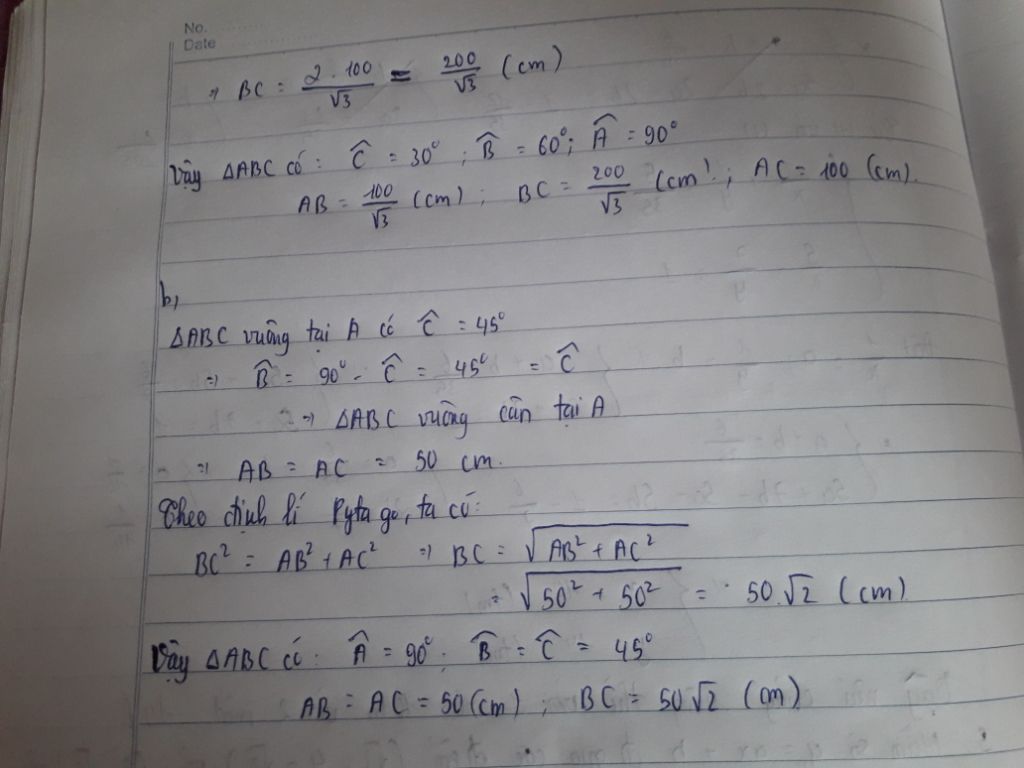 No.
Date
⇒ BC = 2.100/√3 = 200/√3 (cm)
Vậy ΔABC có: Ĉ = 30°; B̂ = 60°; Â = 90°
AB = 100/√3 (cm); BC = 200/√3 (cm); AC = 100 (cm).
b,
ΔABC vuông tại A có Ĉ = 45°
⇒ B̂ = 90° - Ĉ = 45° = Ĉ
⇒ ΔABC vuông cân tại A
⇒ AB = AC = 50 cm.
Theo định lí Pytago, ta có:
BC² = AB² + AC² ⇒ BC = √(AB² + AC²)
= √(50² + 50²) = 50.√2 (cm)
Vậy ΔABC có: Â = 90°. B̂ = Ĉ = 45°
AB = AC = 50 (cm); BC = 50√2 (cm)